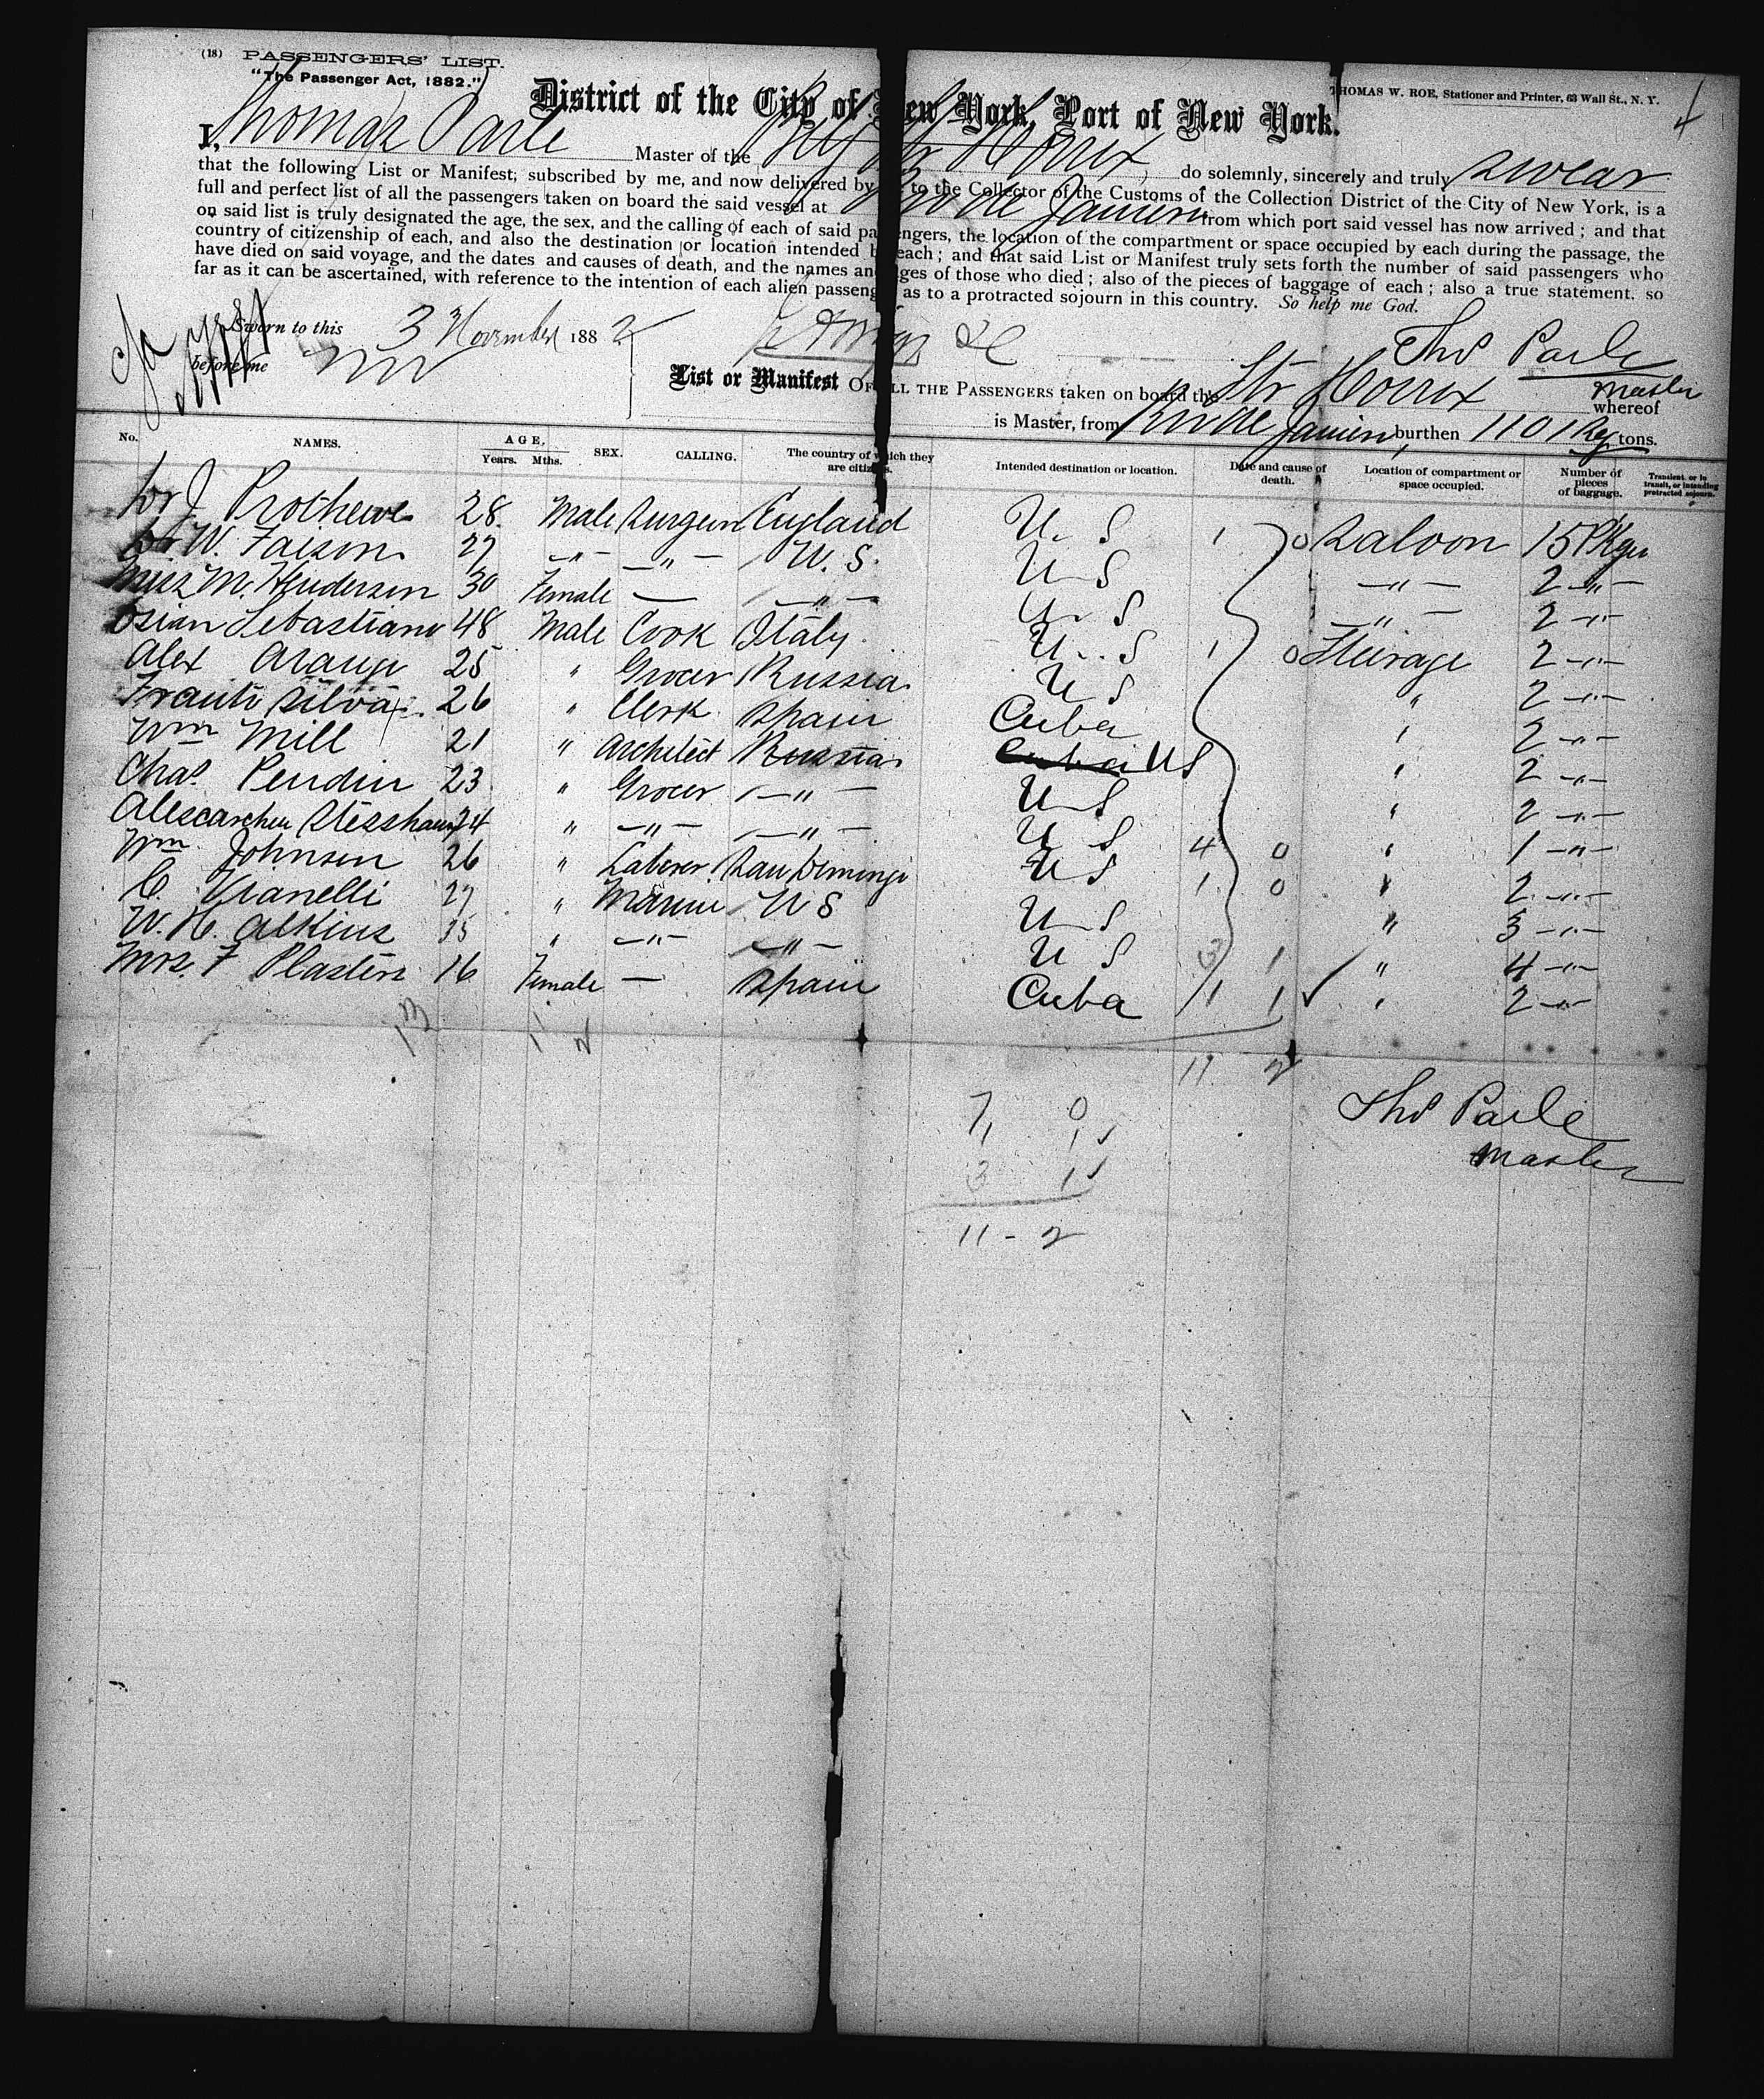 (18) PASSENGERS' LIST. THOMAS W. ROE, Stationer and Printer, 63 Wall St., N. Y.
"The Passenger Act, 1882." 4
District of the City of New York, Port of New York.
I, Thomas Parle Master of the Str Horrox, do solemnly, sincerely and truly swear
that the following List or Manifest; subscribed by me, and now delivered by to the Collector of the Customs of the Collection District of the City of New York, is a
full and perfect list of all the passengers taken on board the said vessel at from which port said vessel has now arrived; and that
on said list is truly designated the age, the sex, and the calling of each of said passengers, the location of the compartment or space occupied by each during the passage, the
country of citizenship of each, and also the destination or location intended by each; and that said List or Manifest truly sets forth the number of said passengers who
have died on said voyage, and the dates and causes of death, and the names and ages of those who died; also of the pieces of baggage of each; also a true statement, so
far as it can be ascertained, with reference to the intention of each alien passenger as to a protracted sojourn in this country. So help me God.
Sworn to this 3 November 1882
before me Thos Parle
Master
List or Manifest OF ALL THE PASSENGERS taken on board the Str Horrox whereof
is Master, from burthen 1101 Reg tons.
No. NAMES. AGE, Years. Mths. SEX. CALLING. The country of which they are citizens. Intended destination or location. Date and cause of death. Location of compartment or space occupied. Number of pieces of baggage. Transient or in transit, or intending protracted sojourn.
Dr J Protheroe 28 Male Surgeon England U. S 1 0 Saloon 15 Pkgs
W. Faison 27 -"- -"- U. S. U S -"- 2 -"-
Miss M. Henderson 30 Female — -"- U. S -"- 2 -"-
Osian Sebastiano 48 Male Cook Italy U. S 1 0 Steirage 2 -"-
Alex Araujo 25 " Grocer Russia U S " 2 -"-
Silva 26 " Clerk Spain Cuba " 2 -"-
Wm Mill 21 " Architect Russia Cuba US " 2 -"-
Chas. Pendin 23 " Grocer -"- U S " 2 -"-
24 " -"- -"- U S 4 0 " 1 -"-
Wm Johnson 26 " Laborer San Domingo U S 1 0 " 2 -"-
C. Vianelli 27 " U S U S " 3 -"-
W. H. Atkins 35 " -"- -"- U S 3 1 " 4 -"-
Mrs. F Plasters 16 Female — Spain Cuba 1 1 " 2 -"-
13 11 2
11 2
7 0
1 1
3 1
11 - 2
Thos Parle
Master